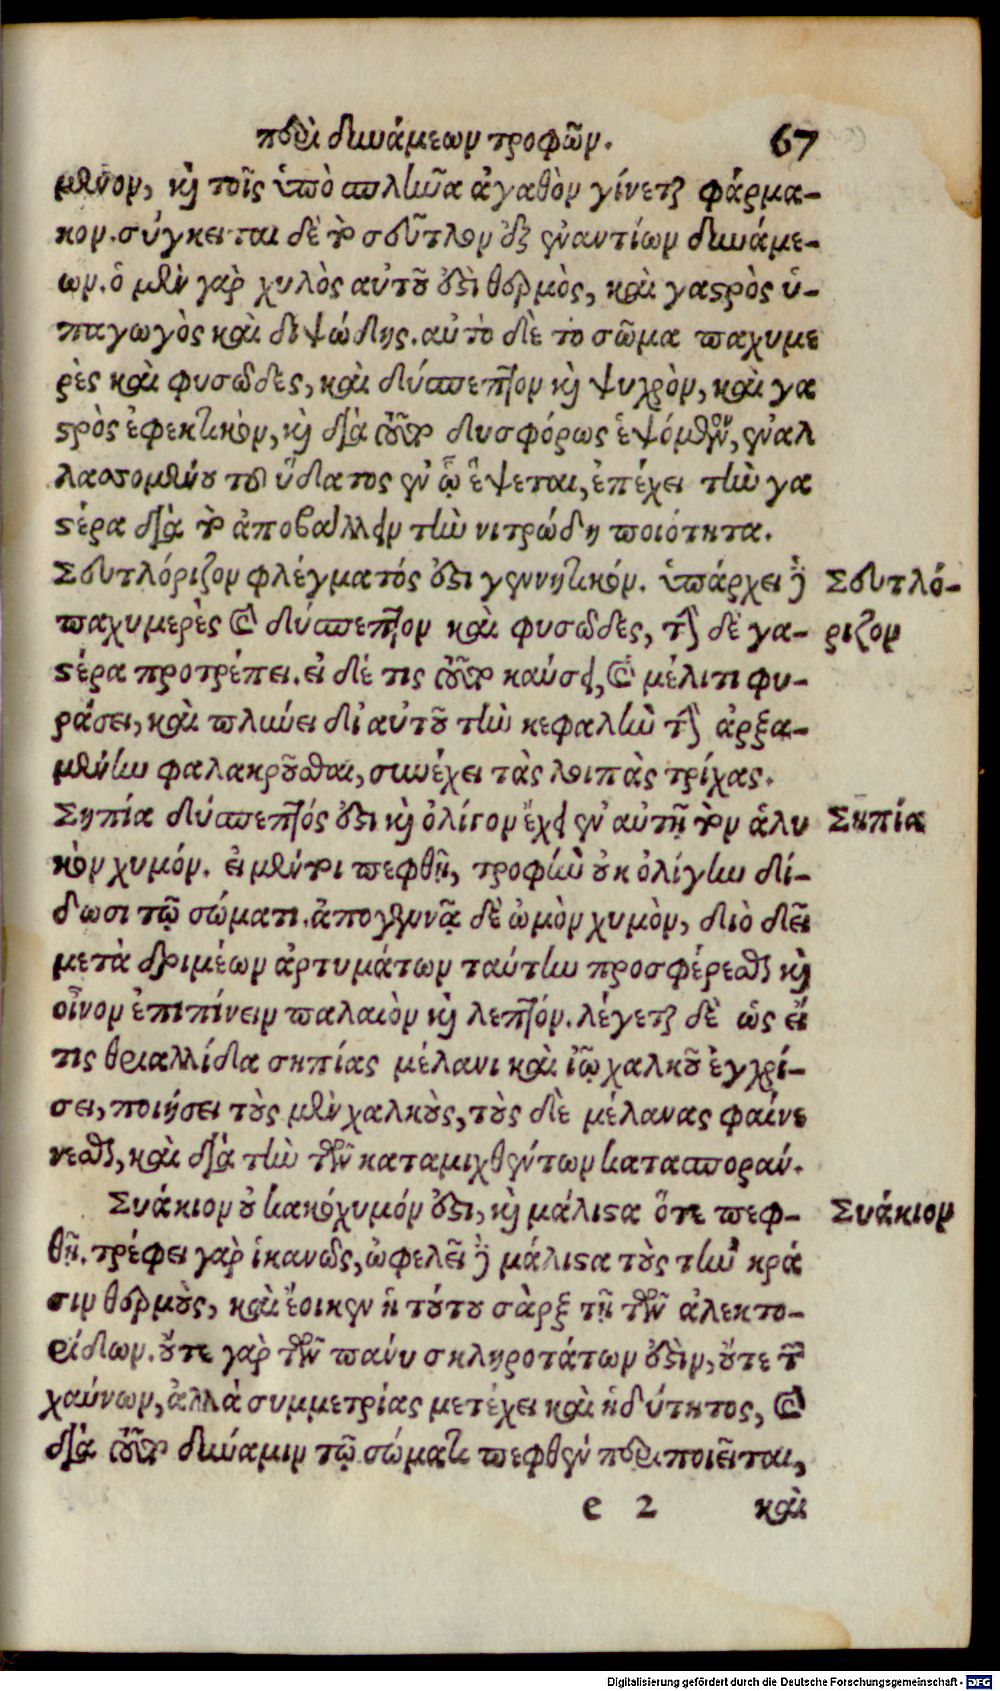 περὶ δυνάμεων τροφῶν. 67
μενον, καὶ τοῖς ὑπὸ σπλῆνα ἀγαθὸν γίνεται φάρμα-
κον. σύγκειται δὲ τὸ σεῦτλον ἐξ ἐναντίων δυνάμε-
ων. ὁ μὲν γὰρ χυλὸς αὐτοῦ ἐστὶ θερμὸς, καὶ γαστρὸς ὑ-
παγωγὸς καὶ διψώδης. αὐτὸ δὲ τὸ σῶμα παχυμε
ρὲς καὶ φυσῶδες, καὶ δύσπεπτον καὶ ψυχρὸν, καὶ γα
στρὸς ἐφεκτικὸν, καὶ διὰ τοῦτο δυσφόρως ἑψόμενον, ἐναλ
λασσομένου τοῦ ὕδατος ἐν ᾧ ἕψεται, ἐπέχει τὴν γα
στέρα διὰ τὸ ἀποβάλλειν τὴν νιτρώδη ποιότητα.
Σευτλόριζον φλέγματός ἐστι γεννητικόν. ὑπάρχει δὲ
παχυμερὲς καὶ δύσπεπτον καὶ φυσῶδες, τὴν δὲ γα-
στέρα προτρέπει. εἰ δέ τις τοῦτο καύσει, καὶ μέλιτι φυ-
ράσει, καὶ πλύνει δι' αὐτοῦ τὴν κεφαλὴν τὴν ἀρξα-
μένην φαλακροῦσθαι, συνέχει τὰς λοιπὰς τρίχας.
Σηπία δύσπεπτός ἐστι καὶ ὀλίγον ἔχει ἐν αὐτῇ τὸν ἁλυ
κὸν χυμόν. εἰ μέντοι πεφθῇ, τροφὴν οὐκ ὀλίγην δί-
δωσι τῷ σώματι. ἀπογεννᾷ δὲ ὠμὸν χυμὸν, διὸ δεῖ
μετὰ δριμέων ἀρτυμάτων ταύτην προσφέρεσθαι καὶ
οἶνον ἐπιπίνειν παλαιὸν καὶ λεπτόν. λέγεται δὲ ὡς εἴ
τις θριαλλίδα σηπίας μέλανι καὶ ἰῷ χαλκοῦ ἐγχρί-
σει, ποιήσει τοὺς μὲν χαλκοὺς, τοὺς δὲ μέλανας φαίνε
νεσθαι, καὶ διὰ τὴν τῶν καταμιχθέντων κατασποράν.
Συάκιον οὐ κακόχυμόν ἐστι, καὶ μάλιστα ὅτε πεφ-
θῇ. τρέφει γὰρ ἱκανῶς, ὠφελεῖ δὲ μάλιστα τοὺς τὴν κρᾶ
σιν θερμοὺς, καὶ ἔοικεν ἡ τούτου σὰρξ τῇ τῶν ἀλεκτο-
ρίδων. οὔτε γὰρ τῶν πάνυ σκληροτάτων ἐστὶν, οὔτε τῶν
χαύνων, ἀλλὰ συμμετρίας μετέχει καὶ ἡδύτητος, καὶ
διὰ τοῦτο δύναμιν τῷ σώματι πεφθὲν περιποιεῖται,
e 2 καὶ
Σευτλό-
ριζον
Σηπία
Συάκιον
Digitalisierung gefördert durch die Deutsche Forschungsgemeinschaft - DFG